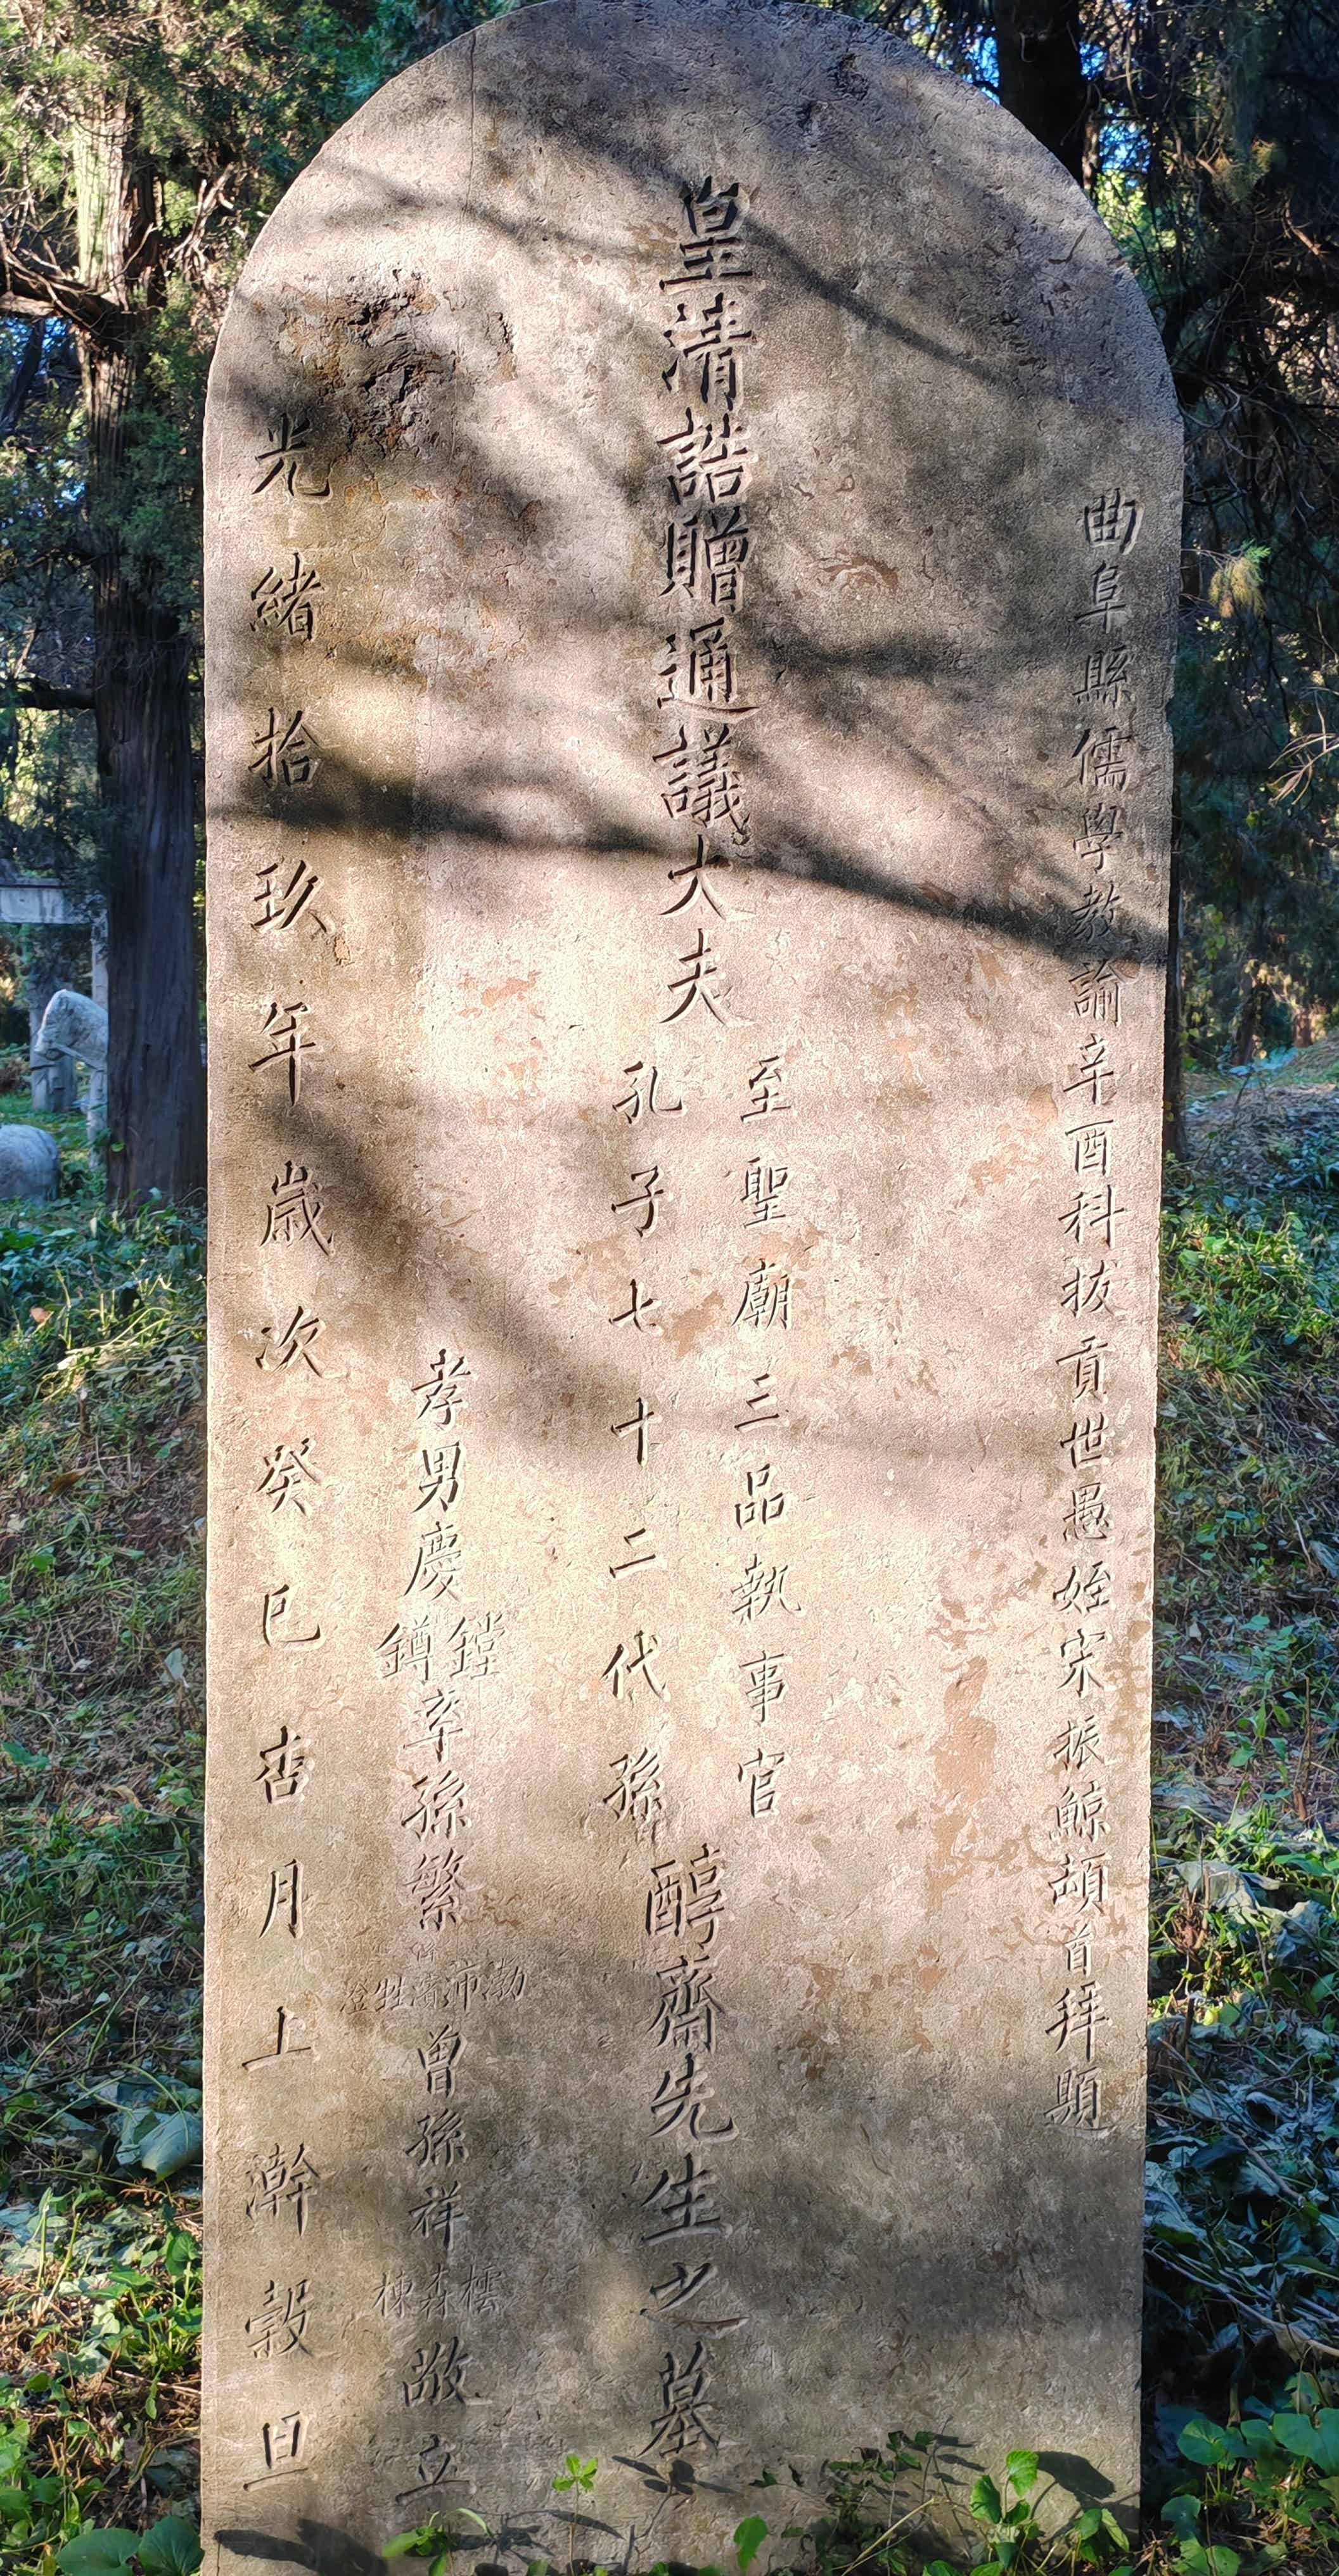 曲阜縣儒學教諭辛酉科拔貢世愚姪宋振鯨頓首拜題
皇清誥贈通議大夫
至聖廟三品執事官
孔子七十二代孫
醇齋先生之墓
孝男慶鏜鐏率孫繁勃沛濱牲澄曾孫祥橒森棟敬立
光緒拾玖年歲次癸巳杏月上澣穀旦